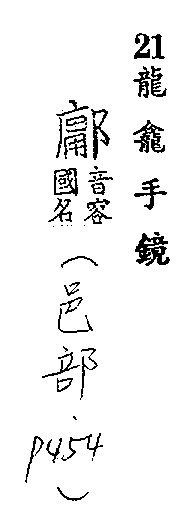 21龍龕手鏡
鄘音容國名（邑部．P454）